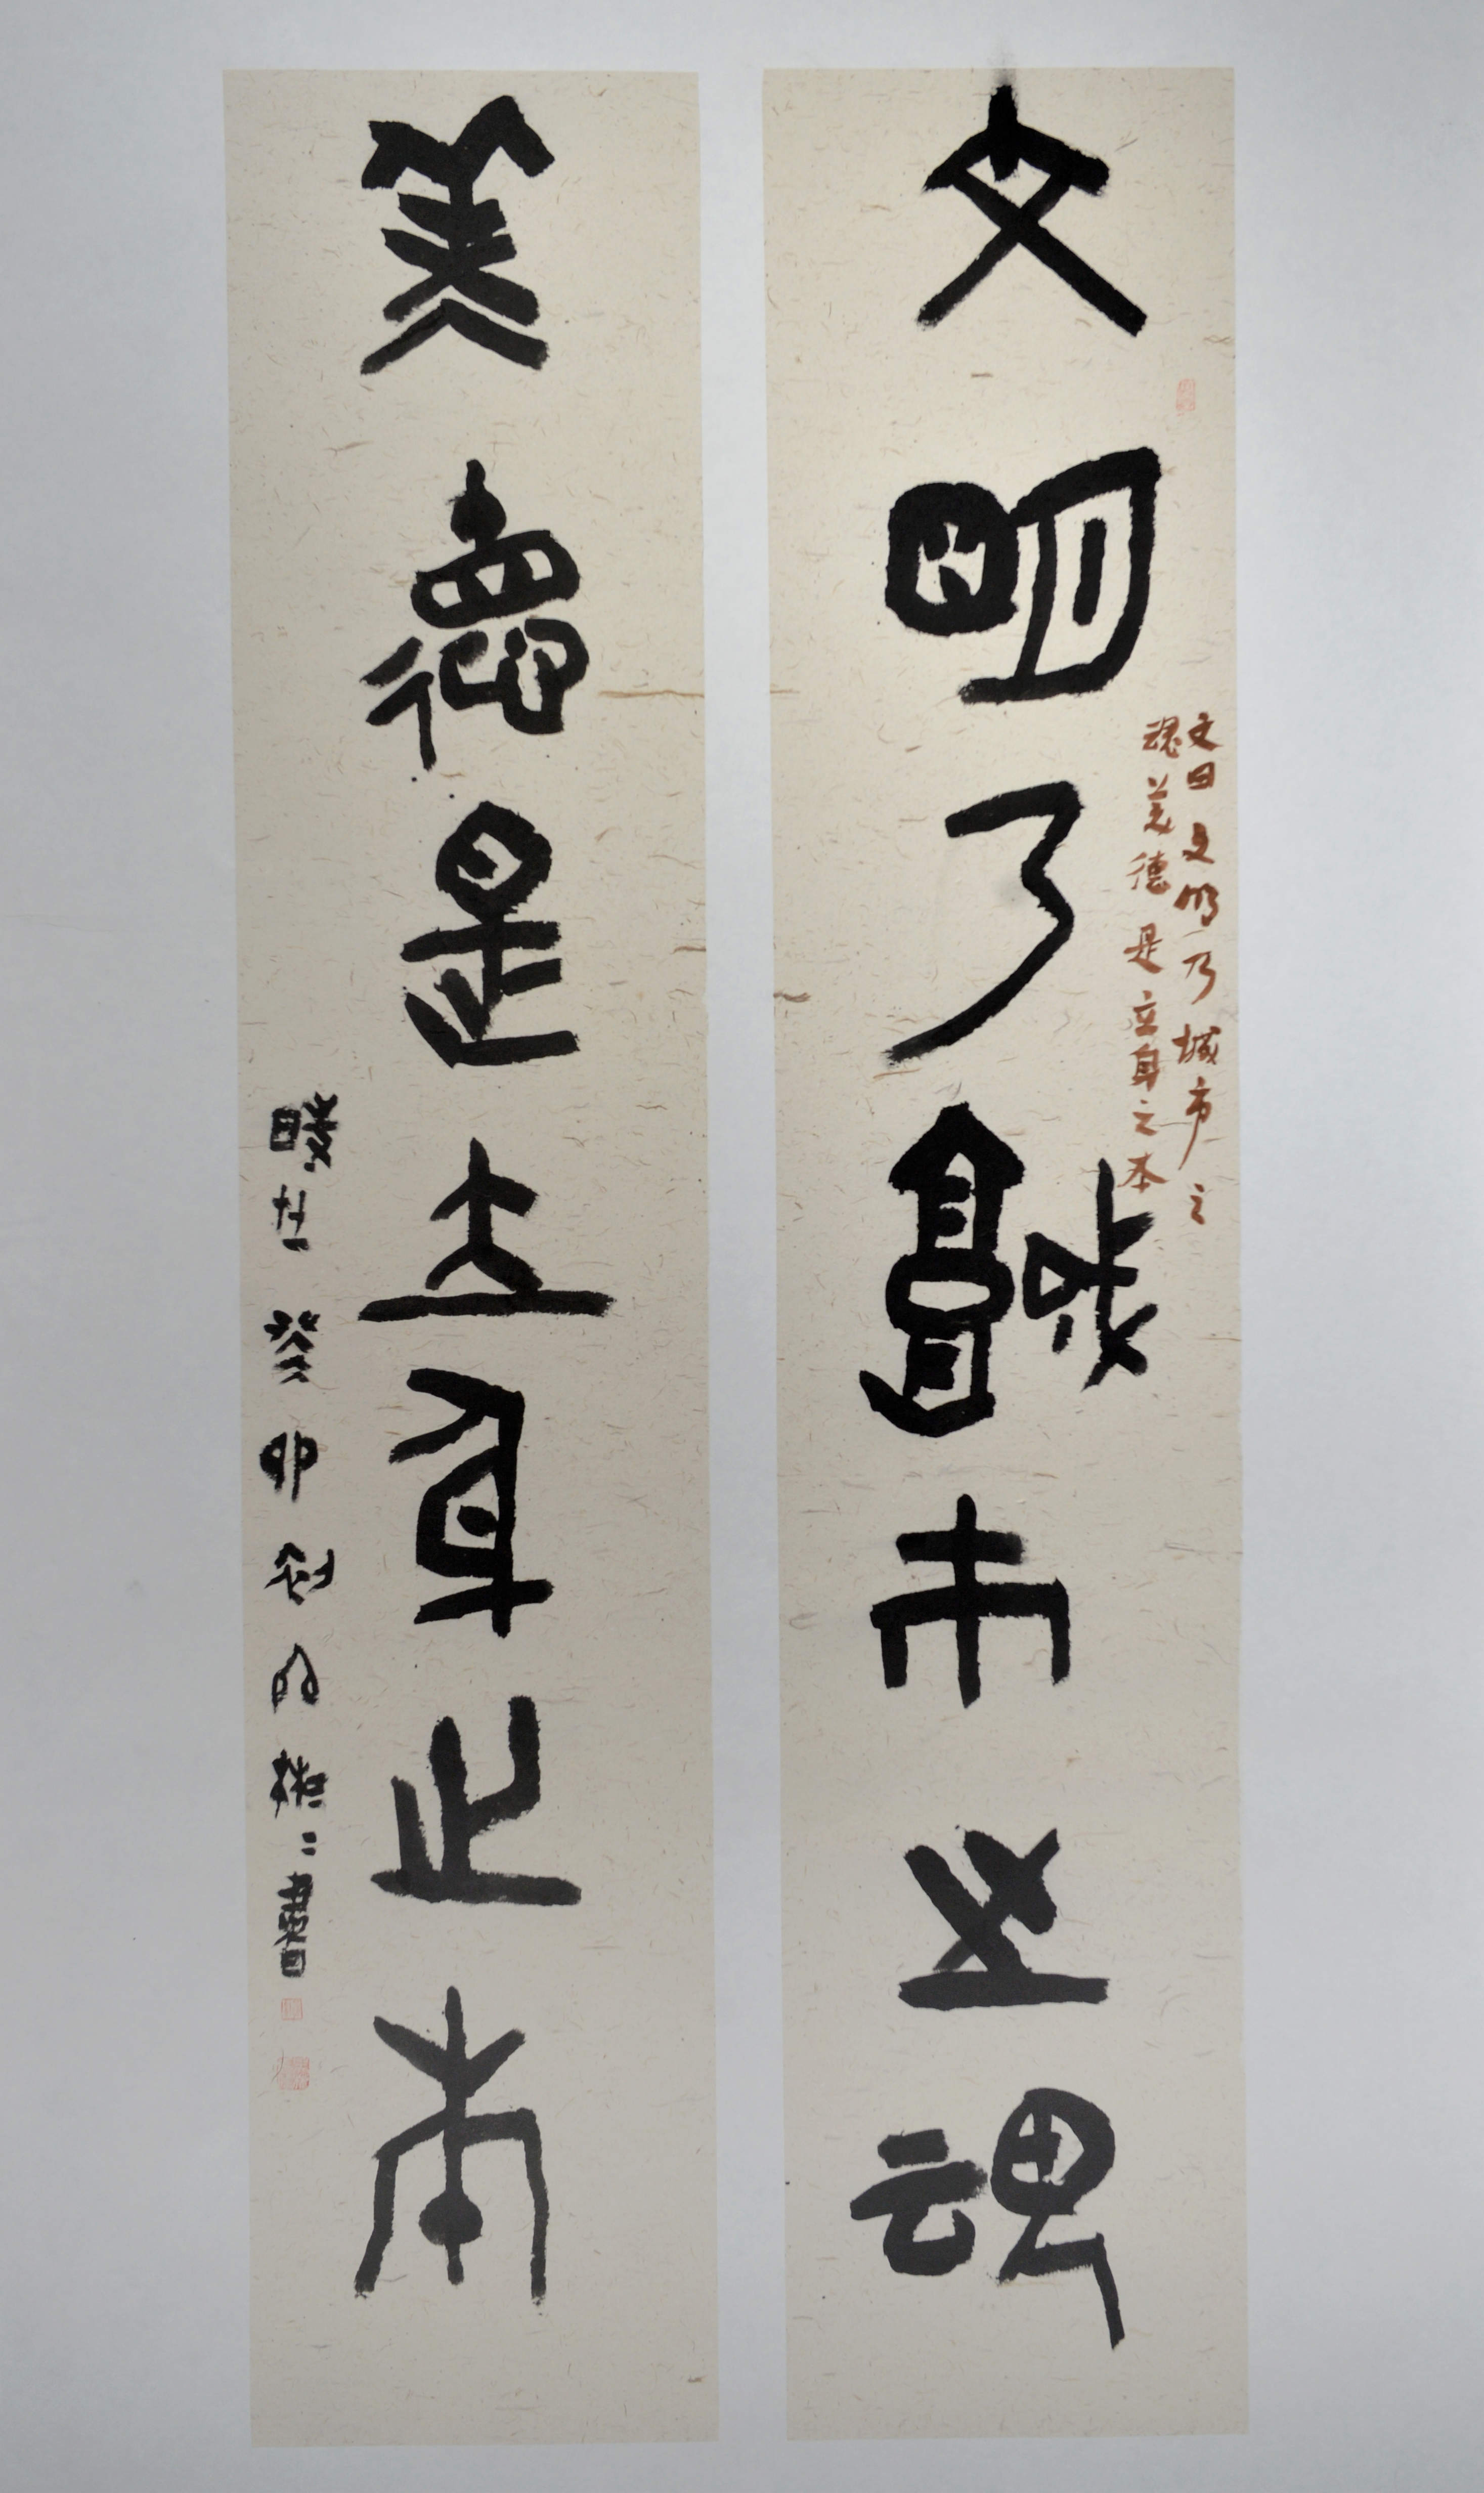 文明乃城市之魂
文曰文明乃城市之
魂美德是立身之本
美德是立身之本
時在癸卯秋月 書